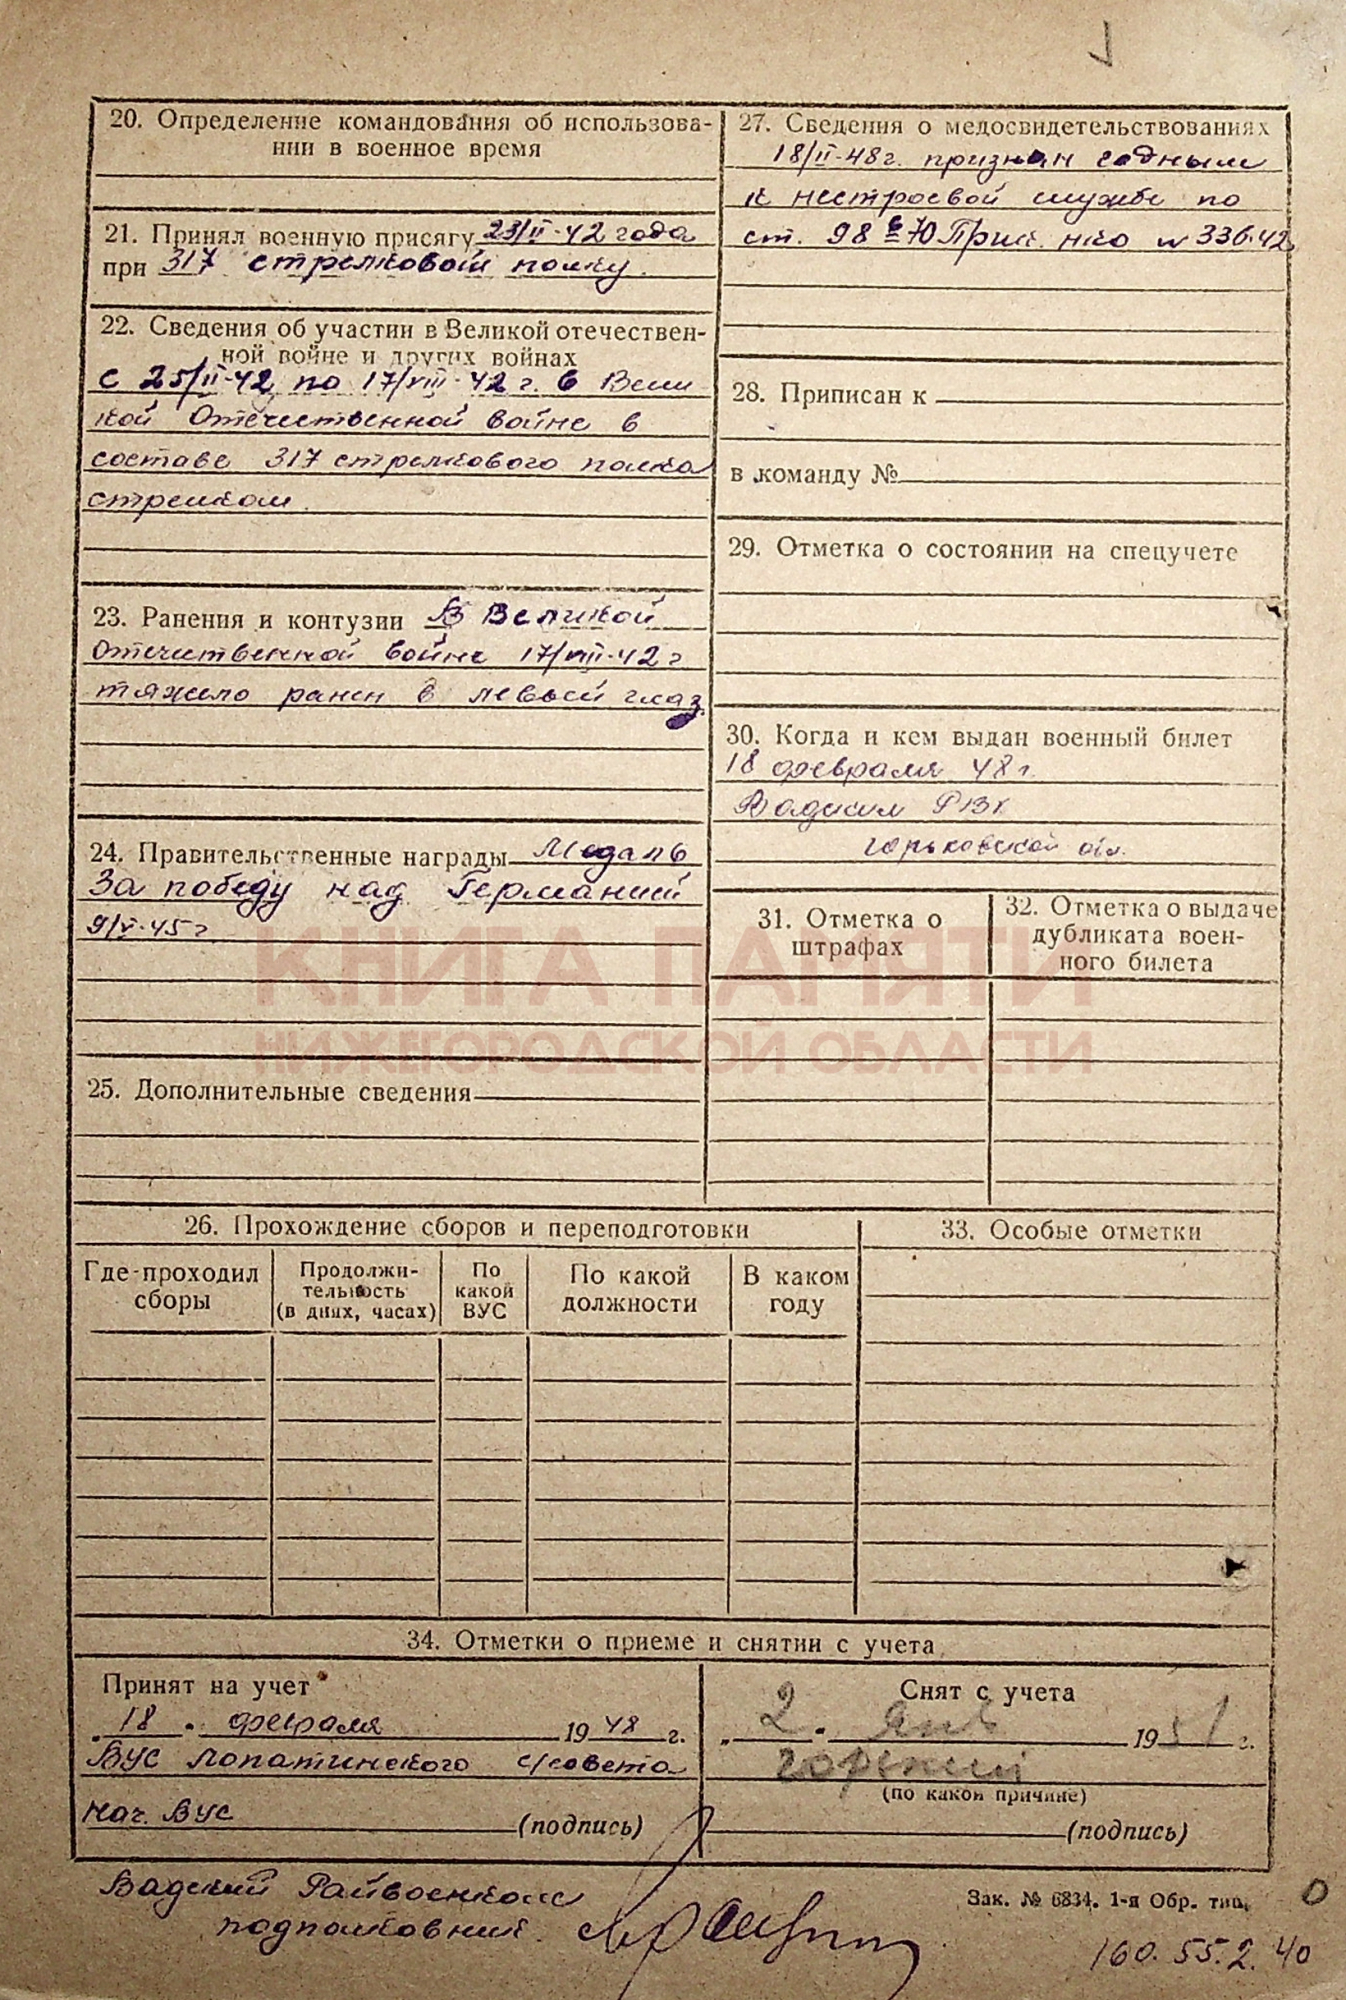 20. Определение командования об использова-
нии в военное время
21. Принял военную присягу 23/II-42 года
при 317 стрелковом полку.
22. Сведения об участии в Великой отечествен-
ной войне и других войнах
с 25/II-42 по 17/VIII-42 г. в Вели
кой Отечественной войне в
составе 317 стрелкового полка
стрелком.
23. Ранения и контузии В Великой
Отечественной войне 17/VIII-42 г
тяжело ранен в левый глаз.
24. Правительственные награды Медаль
За победу над Германией
9/V-45 г.
25. Дополнительные сведения
27. Сведения о медосвидетельствованиях
18/II-48 г. признан годным
к нестроевой службе по
ст. 98 Прик. нко № 336-42
28. Приписан к
в команду №
29. Отметка о состоянии на спецучете
30. Когда и кем выдан военный билет
18 февраля 48 г.
Вадским РВК
Горьковской обл.
31. Отметка о
штрафах
32. Отметка о выдаче
дубликата воен-
ного билета
КНИГА ПАМЯТИ
НИЖЕГОРОДСКОЙ ОБЛАСТИ
26. Прохождение сборов и переподготовки
Где проходил
сборы
Продолжи-
тельность
(в днях, часах)
По
какой
ВУС
По какой
должности
В каком
году
33. Особые отметки
34. Отметки о приеме и снятии с учета
Принят на учет
„18" февраля 1948 г.
ВУС Лопатинского с/совета
Нач. ВУС (подпись)
Снят с учета
„2" янв 1951 г.
(по какой причине)
(подпись)
Вадский Райвоенком
подполковник
Зак. № 6834. 1-я Обр. тип.
160.55.2.40